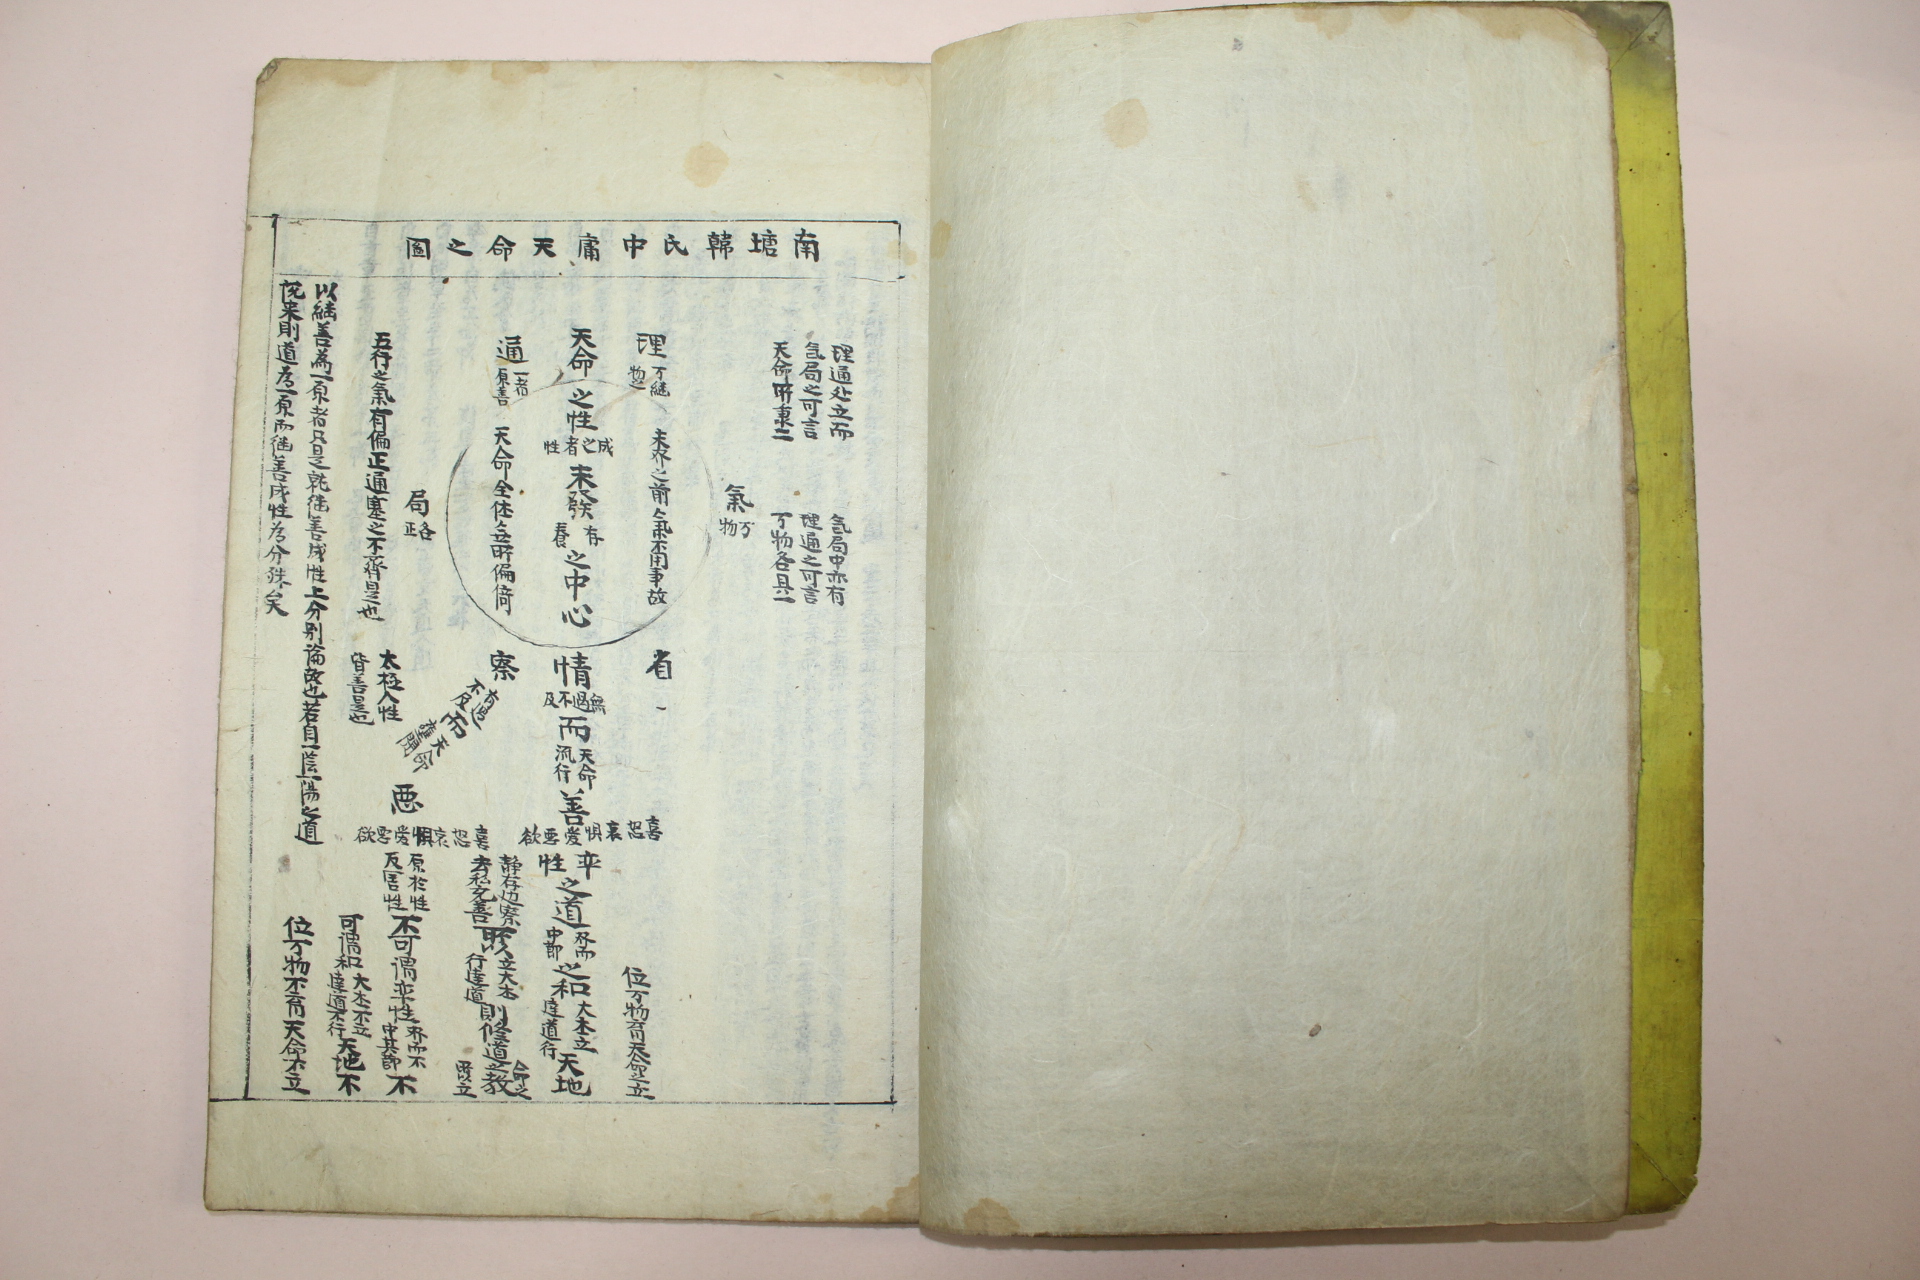 南塘韓氏中庸天命之圖
理通处立而
氣局之可言
天命所稟之
氣局中亦有
理通之可言
万物各具一
氣
万物
理
万継物之
未發之前氣不用事故
天命之性
成之者性
未發
存養
之中心
通
一原者善
天命全体立所偏倚
局
五行之氣有偏正通塞之不齊是也
太極人性
皆善是也
以継善為一原者只是就継善成性上分別論故也若自一陰一陽之道
説来則道為一原而継善成性為分殊矣
省
察
情
無過不及
而
天命流行
善
喜怒哀惧爱悪欲
有過不及
而
天命
悪
喜怒哀惧爱悪欲
位万物育天命之立
率性之道
發而中節
之和
大本立
達道行
天地
静存动察
立大本
行達道
則修道之教
命之所以立
原於性
反害性
不可謂率性
發而不中其節
不
可謂和
大本不立
達道不行
天地不
位万物不育天命不立